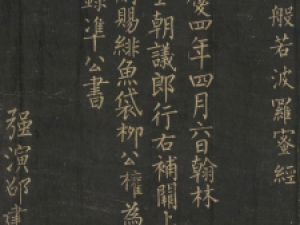 般若波羅蜜經
慶四年四月六日翰林
士朝議郎行右補闕上
尉賜緋魚袋柳公權為
錄准公書
强演邵建